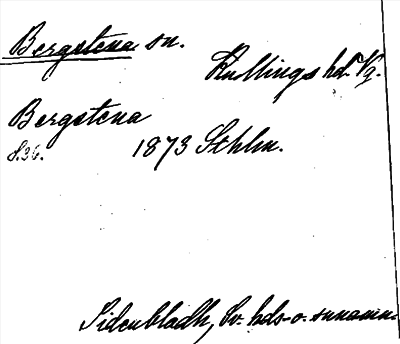 Bergstena sn.
Kullings hd. Vg.
Bergstena
s. 36. 1873 Sthlm.
Sidenbladh, Sv. hds- o. snnamn.